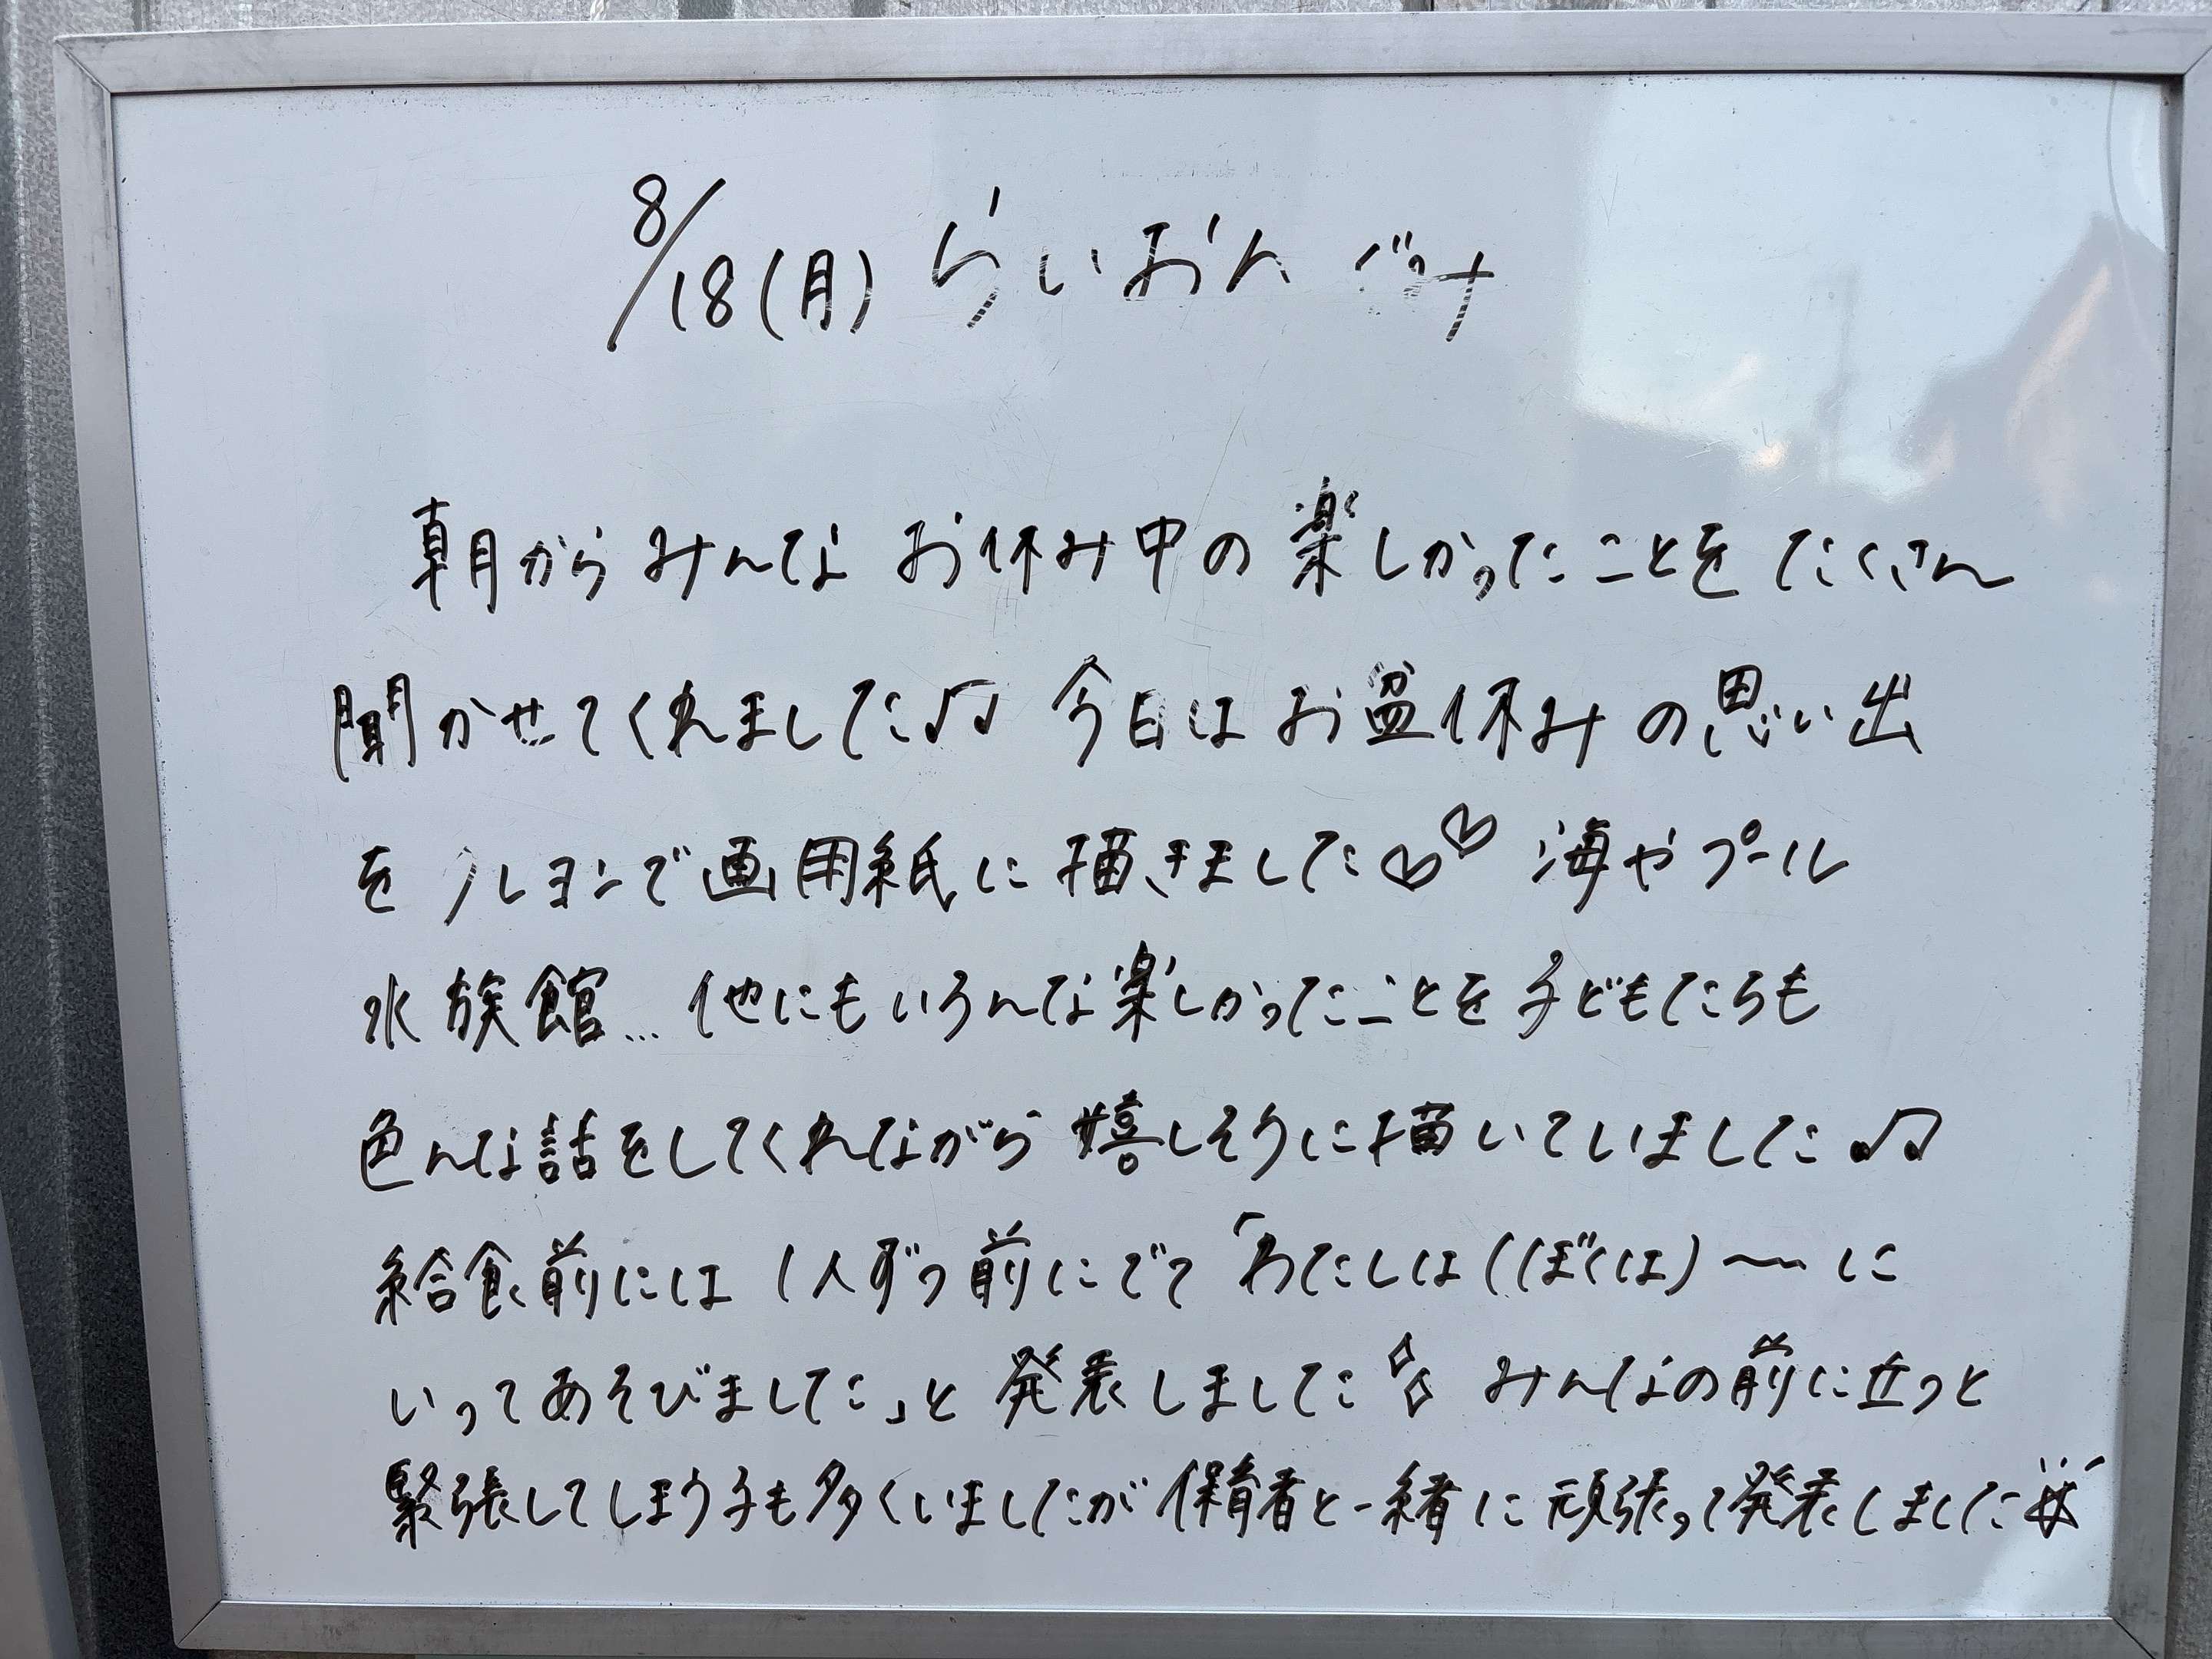 8/18(月) らいおんぐみ
朝からみんなお休み中の楽しかったことをたくさん
聞かせてくれました♫ 今日はお盆休みの思い出
を クレヨンで画用紙に描きました♡♡ 海やプール
水族館… 他にもいろんな楽しかったことを子どもたちも
色んな話をしてくれながら嬉しそうに描いていました♫
給食前には1人ずつ前にでて「わたしは(ぼくは)〜に
いってあそびました」と発表しました✧ みんなの前に立つと
緊張してしまう子も多くいましたが保育者と一緒に頑張って発表しました☆